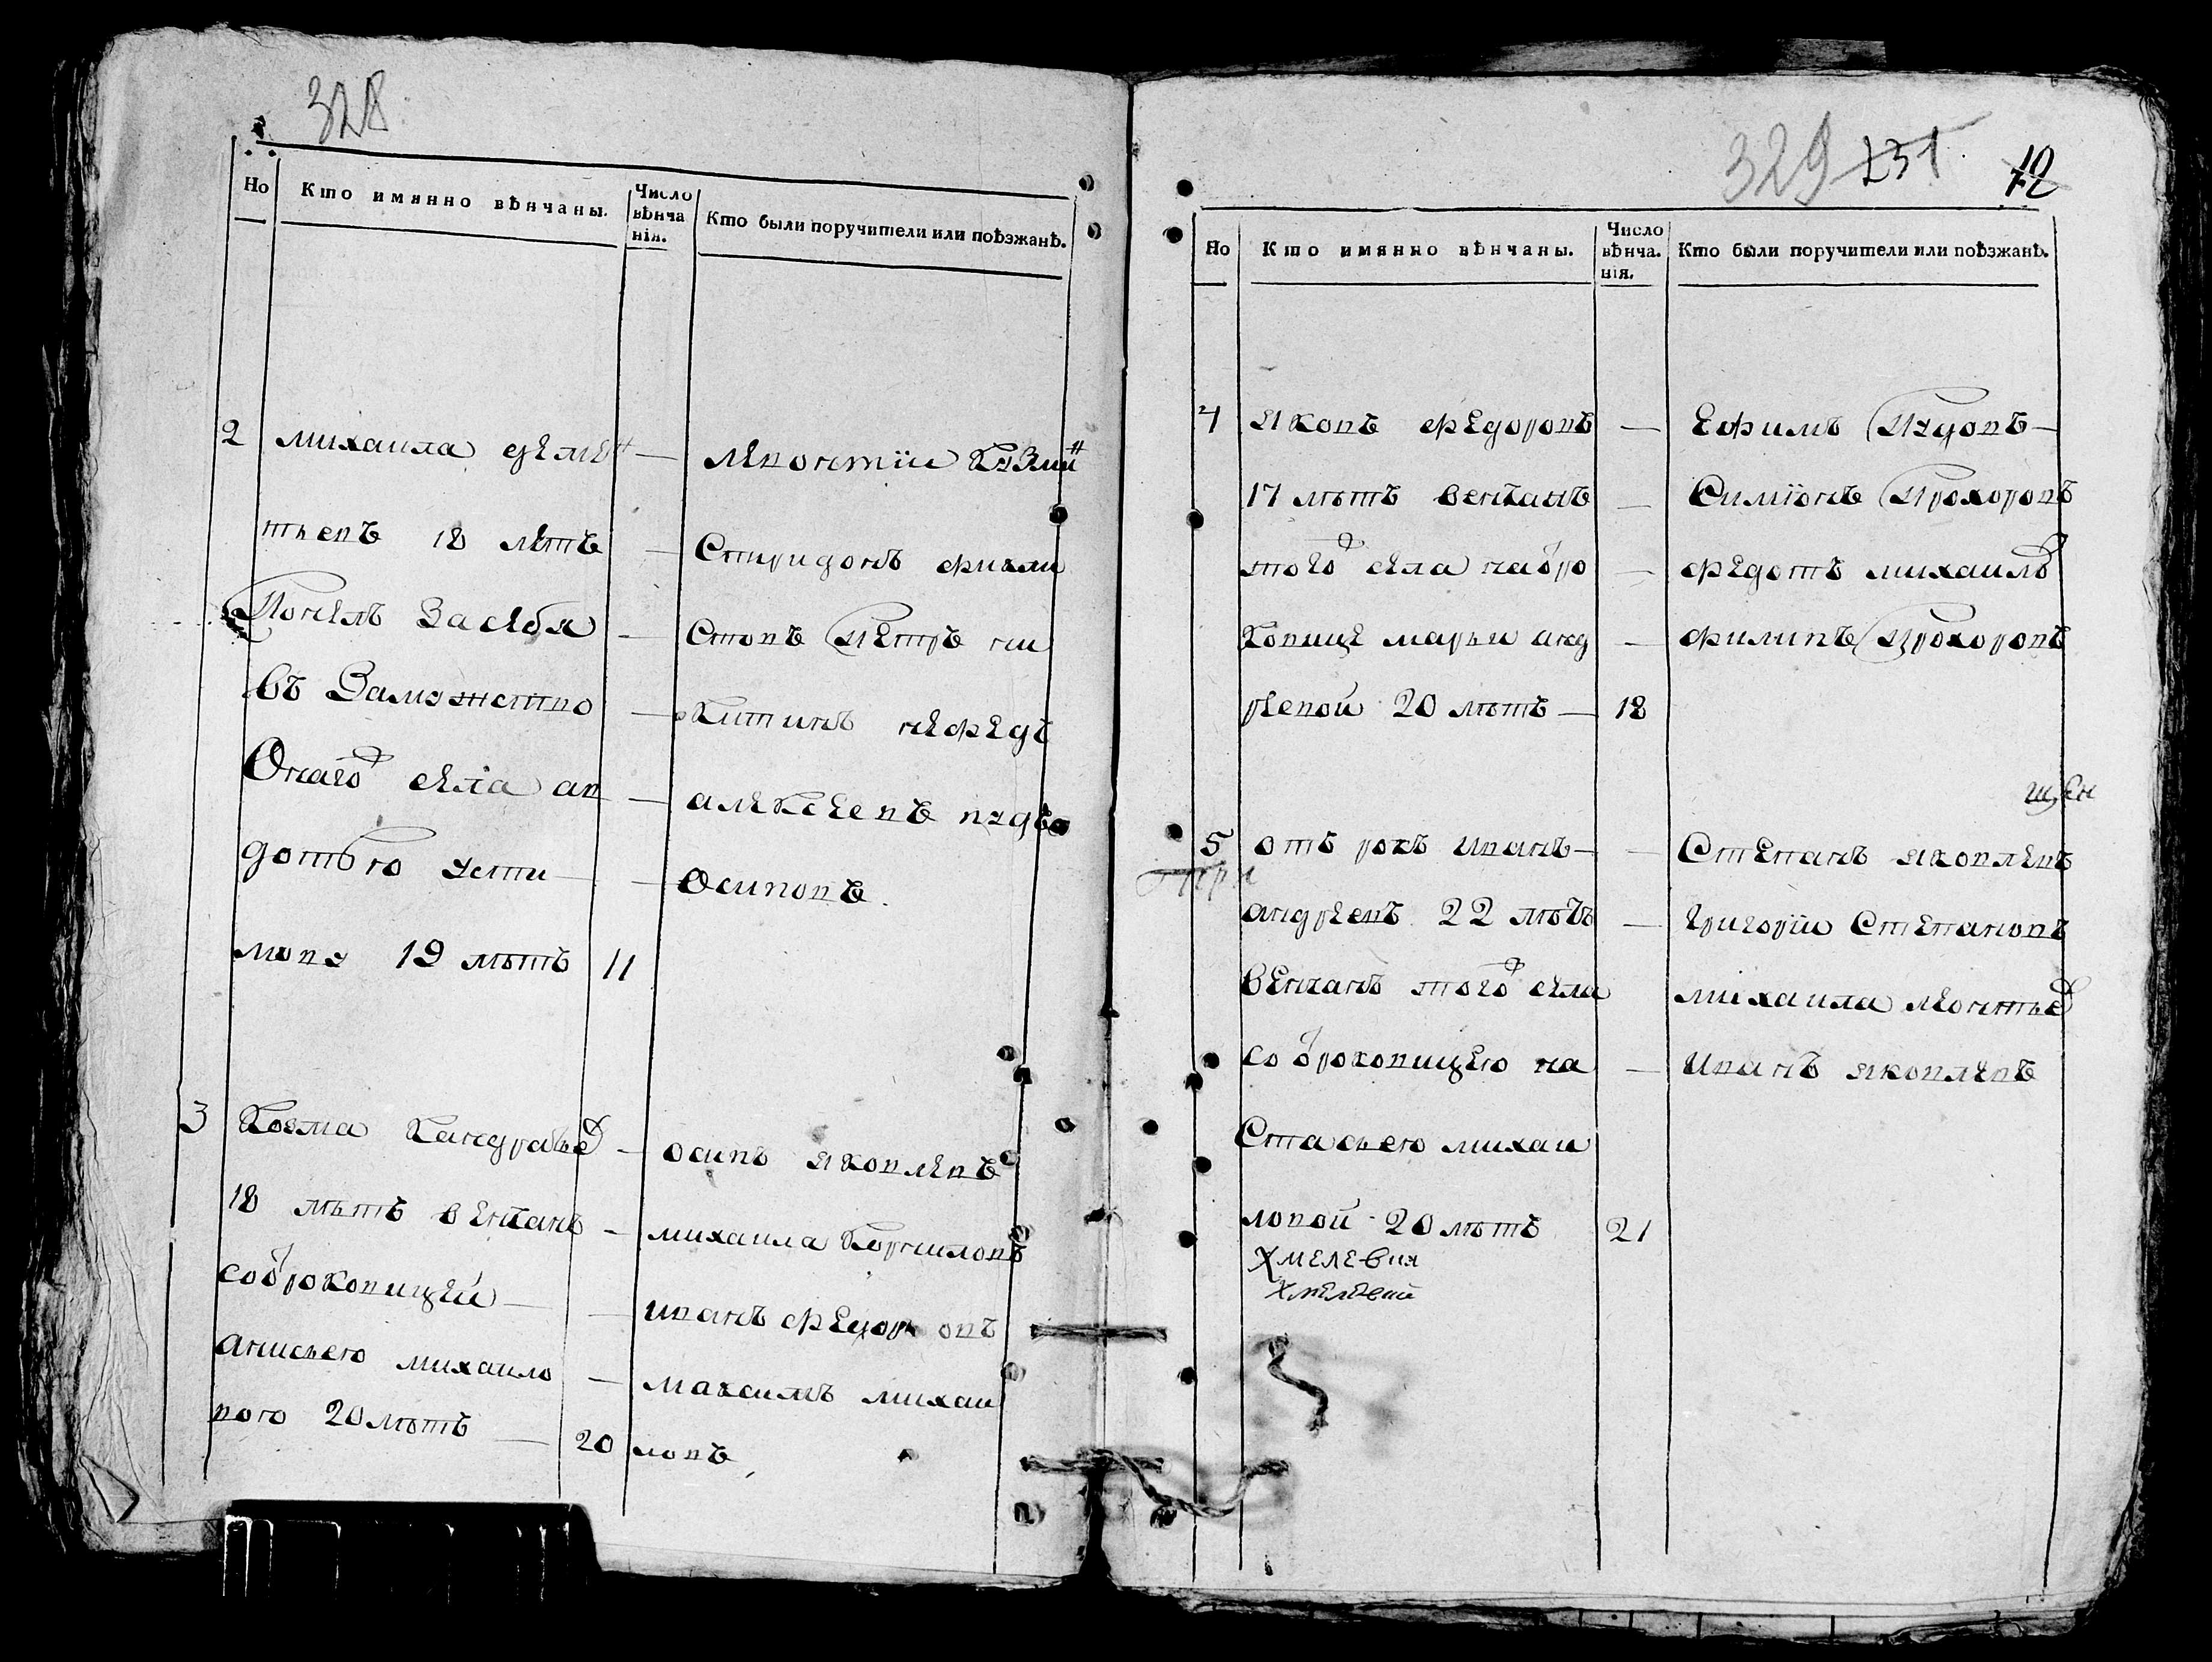 328
Но
Кто имянно вѣнчаны.
Число вѣнчанія.
Кто были поручители или поѣзжанѣ.
2 михаила демен
тьевъ 18 лѣтъ
Понелъ Засебя
въ Замужство
Онаго села ав
дотью усти
мову 19 лѣтъ 11
леонтїи Кузми
Спиридонъ фили
Стовъ Петръ ни
Китинъ нефедъ
алексеевъ
Осиповъ.
3 Козма Кандратье
18 лѣтъ венчанъ
соброковицей
анисьею михаило
вою 20 лѣтъ 20
осипъ яковлевъ
михаила Корниловъ
иванъ федоровъ
максимъ михаи
ловъ
329 131 12
Но
Кто имянно вѣнчаны.
Число вѣнчанія.
Кто были поручители или поѣзжанѣ.
4 яковъ федоровъ
17 лѣтъ венчанъ
того села набро
ковице марьи анд
реевой 20 лѣтъ 18
Ефимъ
Симїонъ Прохоровъ
федотъ михаилъ
филипъ Прохоровъ
5 отъ рокъ иванъ
андреевъ 22 лѣтъ
венчанъ того села
соброковицею на
Стасьею михаи
ловой 20 лѣтъ 21
Хмелевия
Хмелевий
Степанъ яковлевъ
Григорїи Степановъ
михаила леонтье
иванъ яковлевъ